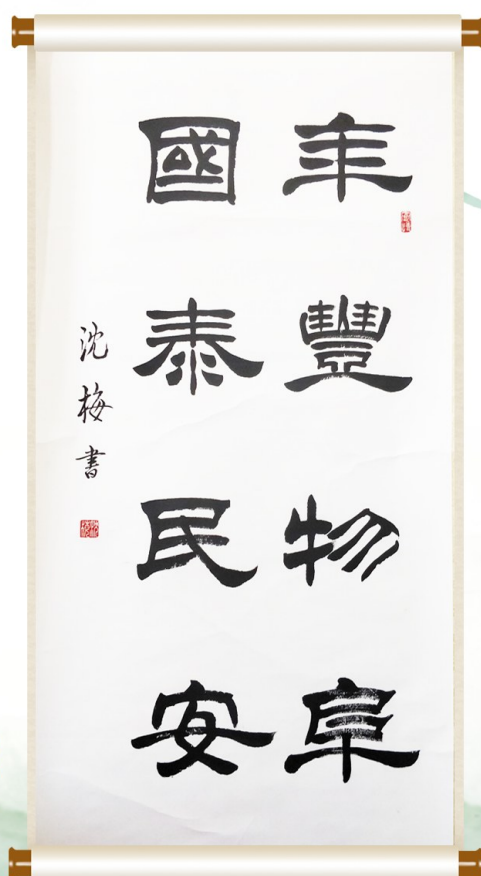 年豐物阜
國泰民安
沈梅書